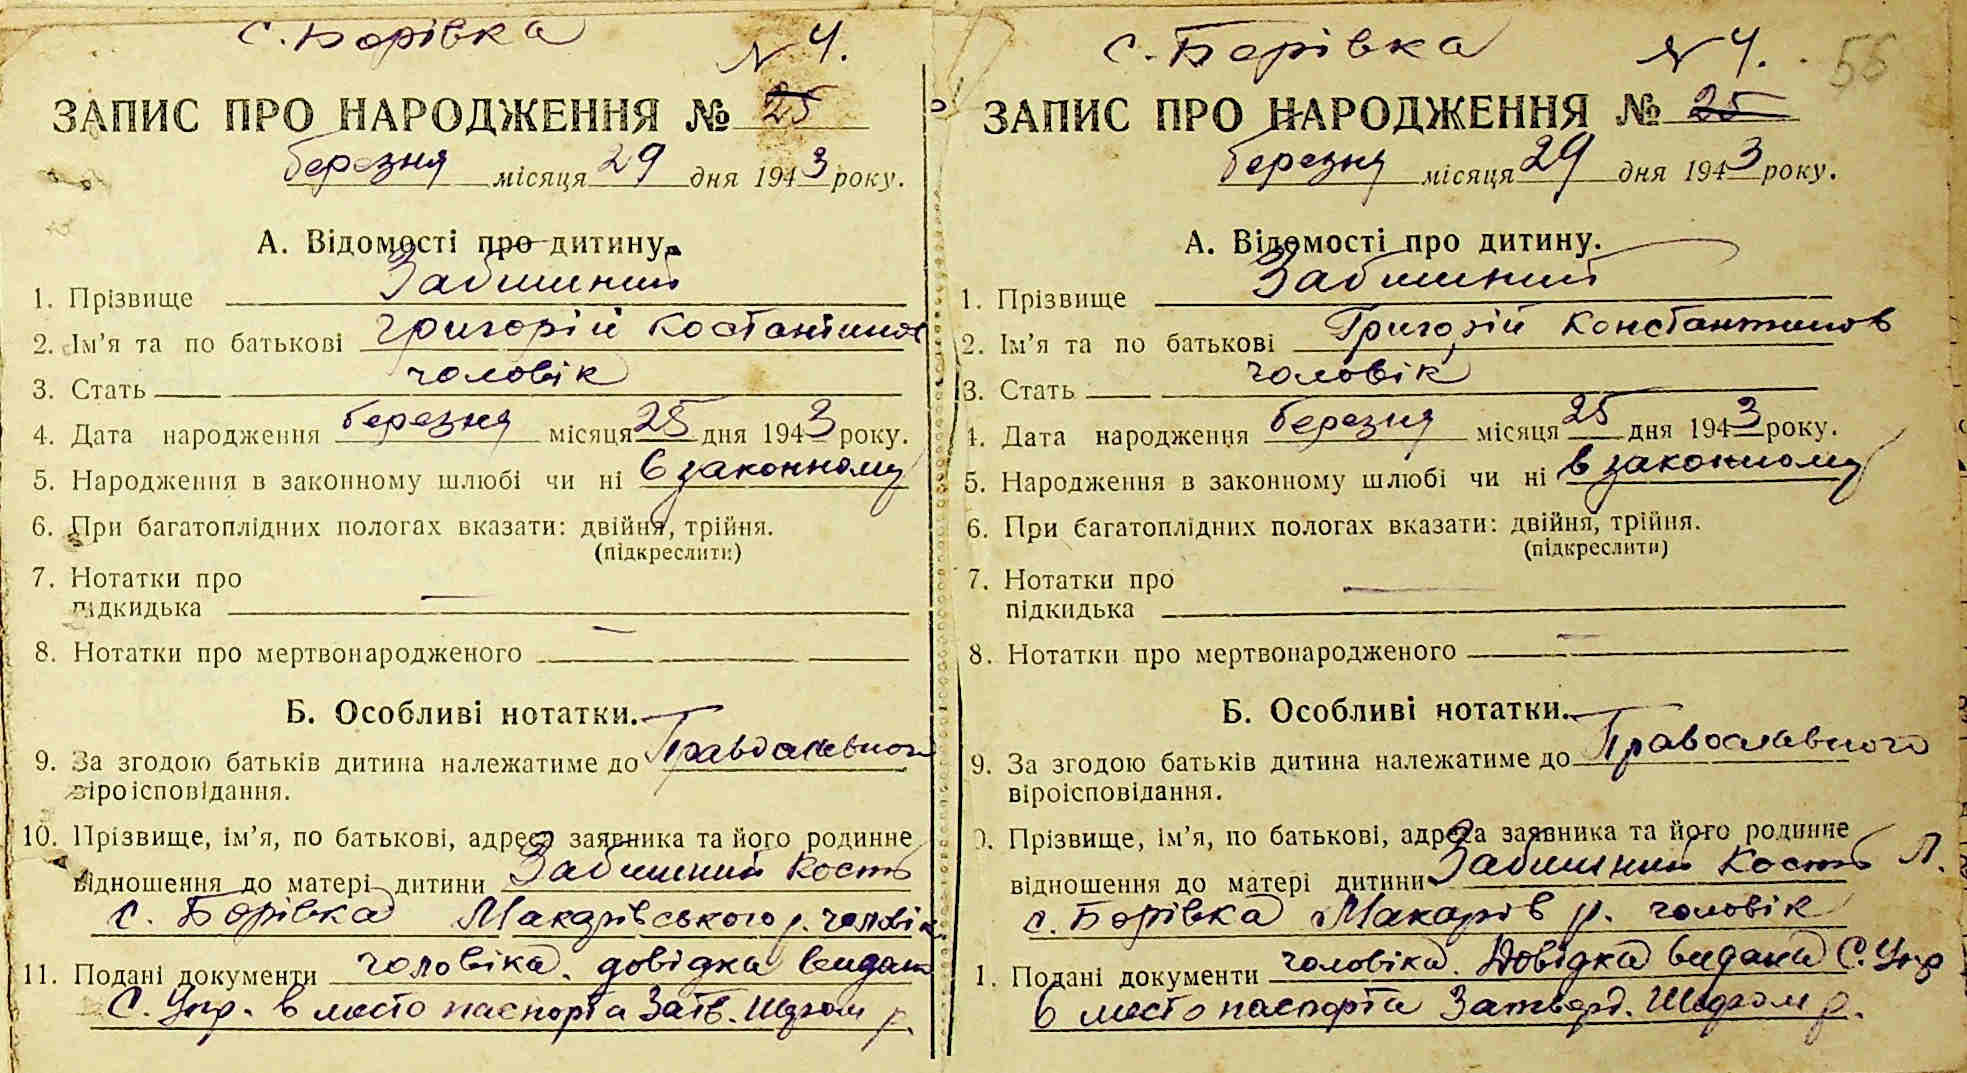 с. Борівка
№ 4.
ЗАПИС ПРО НАРОДЖЕННЯ № 25
березня місяця 29 дня 1943 року.
А. Відомості про дитину.
1. Прізвище Забишний
2. Ім'я та по батькові Григорій Костантинов
3. Стать чоловік
4. Дата народження березня місяця 25 дня 1943 року.
5. Народження в законному шлюбі чи ні в законному
6. При багатоплідних пологах вказати: двійня, трійня.
(підкреслити)
7. Нотатки про
підкидька —
8. Нотатки про мертвонародженого —
Б. Особливі нотатки.
9. За згодою батьків дитина належатиме до Православного
віроісповідання.
10. Прізвище, ім'я, по батькові, адреса заявника та його родинне
відношення до матері дитини Забишний Кость
с. Борівка Макарівського р. чоловік
11. Подані документи чоловіка. довідка видана
С. Упр. в место паспорта Затв.
с. Борівка
№ 4. 56
ЗАПИС ПРО НАРОДЖЕННЯ № 25
березня місяця 29 дня 1943 року.
А. Відомості про дитину.
1. Прізвище Забишний
2. Ім'я та по батькові Григорій Константинов
3. Стать чоловік
4. Дата народження березня місяця 25 дня 1943 року.
5. Народження в законному шлюбі чи ні в законному
6. При багатоплідних пологах вказати: двійня, трійня.
(підкреслити)
7. Нотатки про
підкидька —
8. Нотатки про мертвонародженого —
Б. Особливі нотатки.
9. За згодою батьків дитина належатиме до Православного
віроісповідання.
0. Прізвище, ім'я, по батькові, адреса заявника та його родинне
відношення до матері дитини Забишний Кость Л.
с. Борівка Макарів р. чоловік
1. Подані документи чоловіка. Довідка видана С. Упр
в место паспорта Затверд.